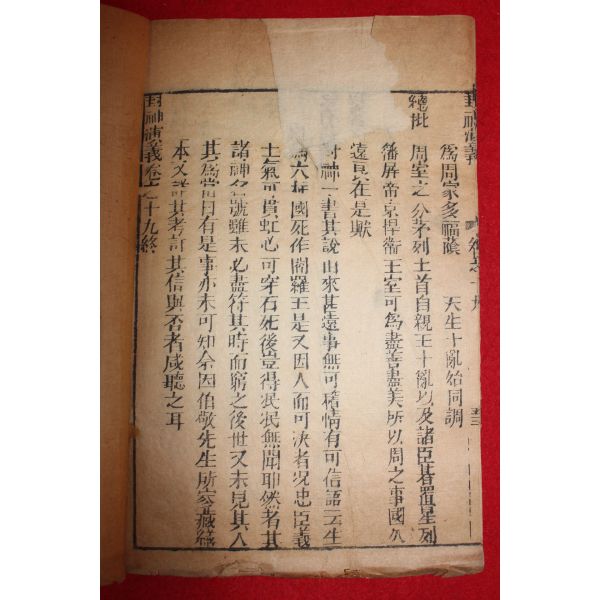 封神演義 卷之十九 五三
為周家多福蔭 天生十亂始同調
總批
周室之分茅列土首自親王十亂以及諸臣碁置星列
藩屏帝京捍衛王室可為盡善盡美所以周之事國久
遠良在是歟
封神一書其說由來甚遠事無可稽情有可信語云生
為六柱國死作閻羅王是又因人而可決者況忠臣義
士氣可貫虹心可穿石死後豈得泯泯無聞耶然者其
諸神名號雖未必盡符其時而窮之後世又未見其人
其為當日有是事亦未可知余因伯敬先生所家藏繕
本又詳其考訂其信與否者咸聽之耳
封神演義卷之十九終